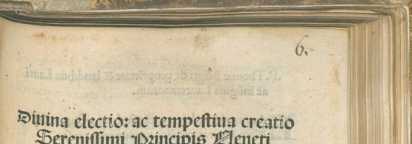 6.
Diuina electio: ac tempestiua creatio
Serenissimi Principis Veneti